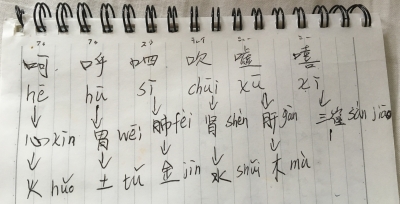 呵 呼 呬 吹 嘘 嘻
hē hū sī chuī xū xī
心 xīn 胃 wèi 肺 fèi 肾 shèn 肝 gān 三焦 sān jiāo
火 huǒ 土 tǔ 金 jīn 水 shuǐ 木 mù